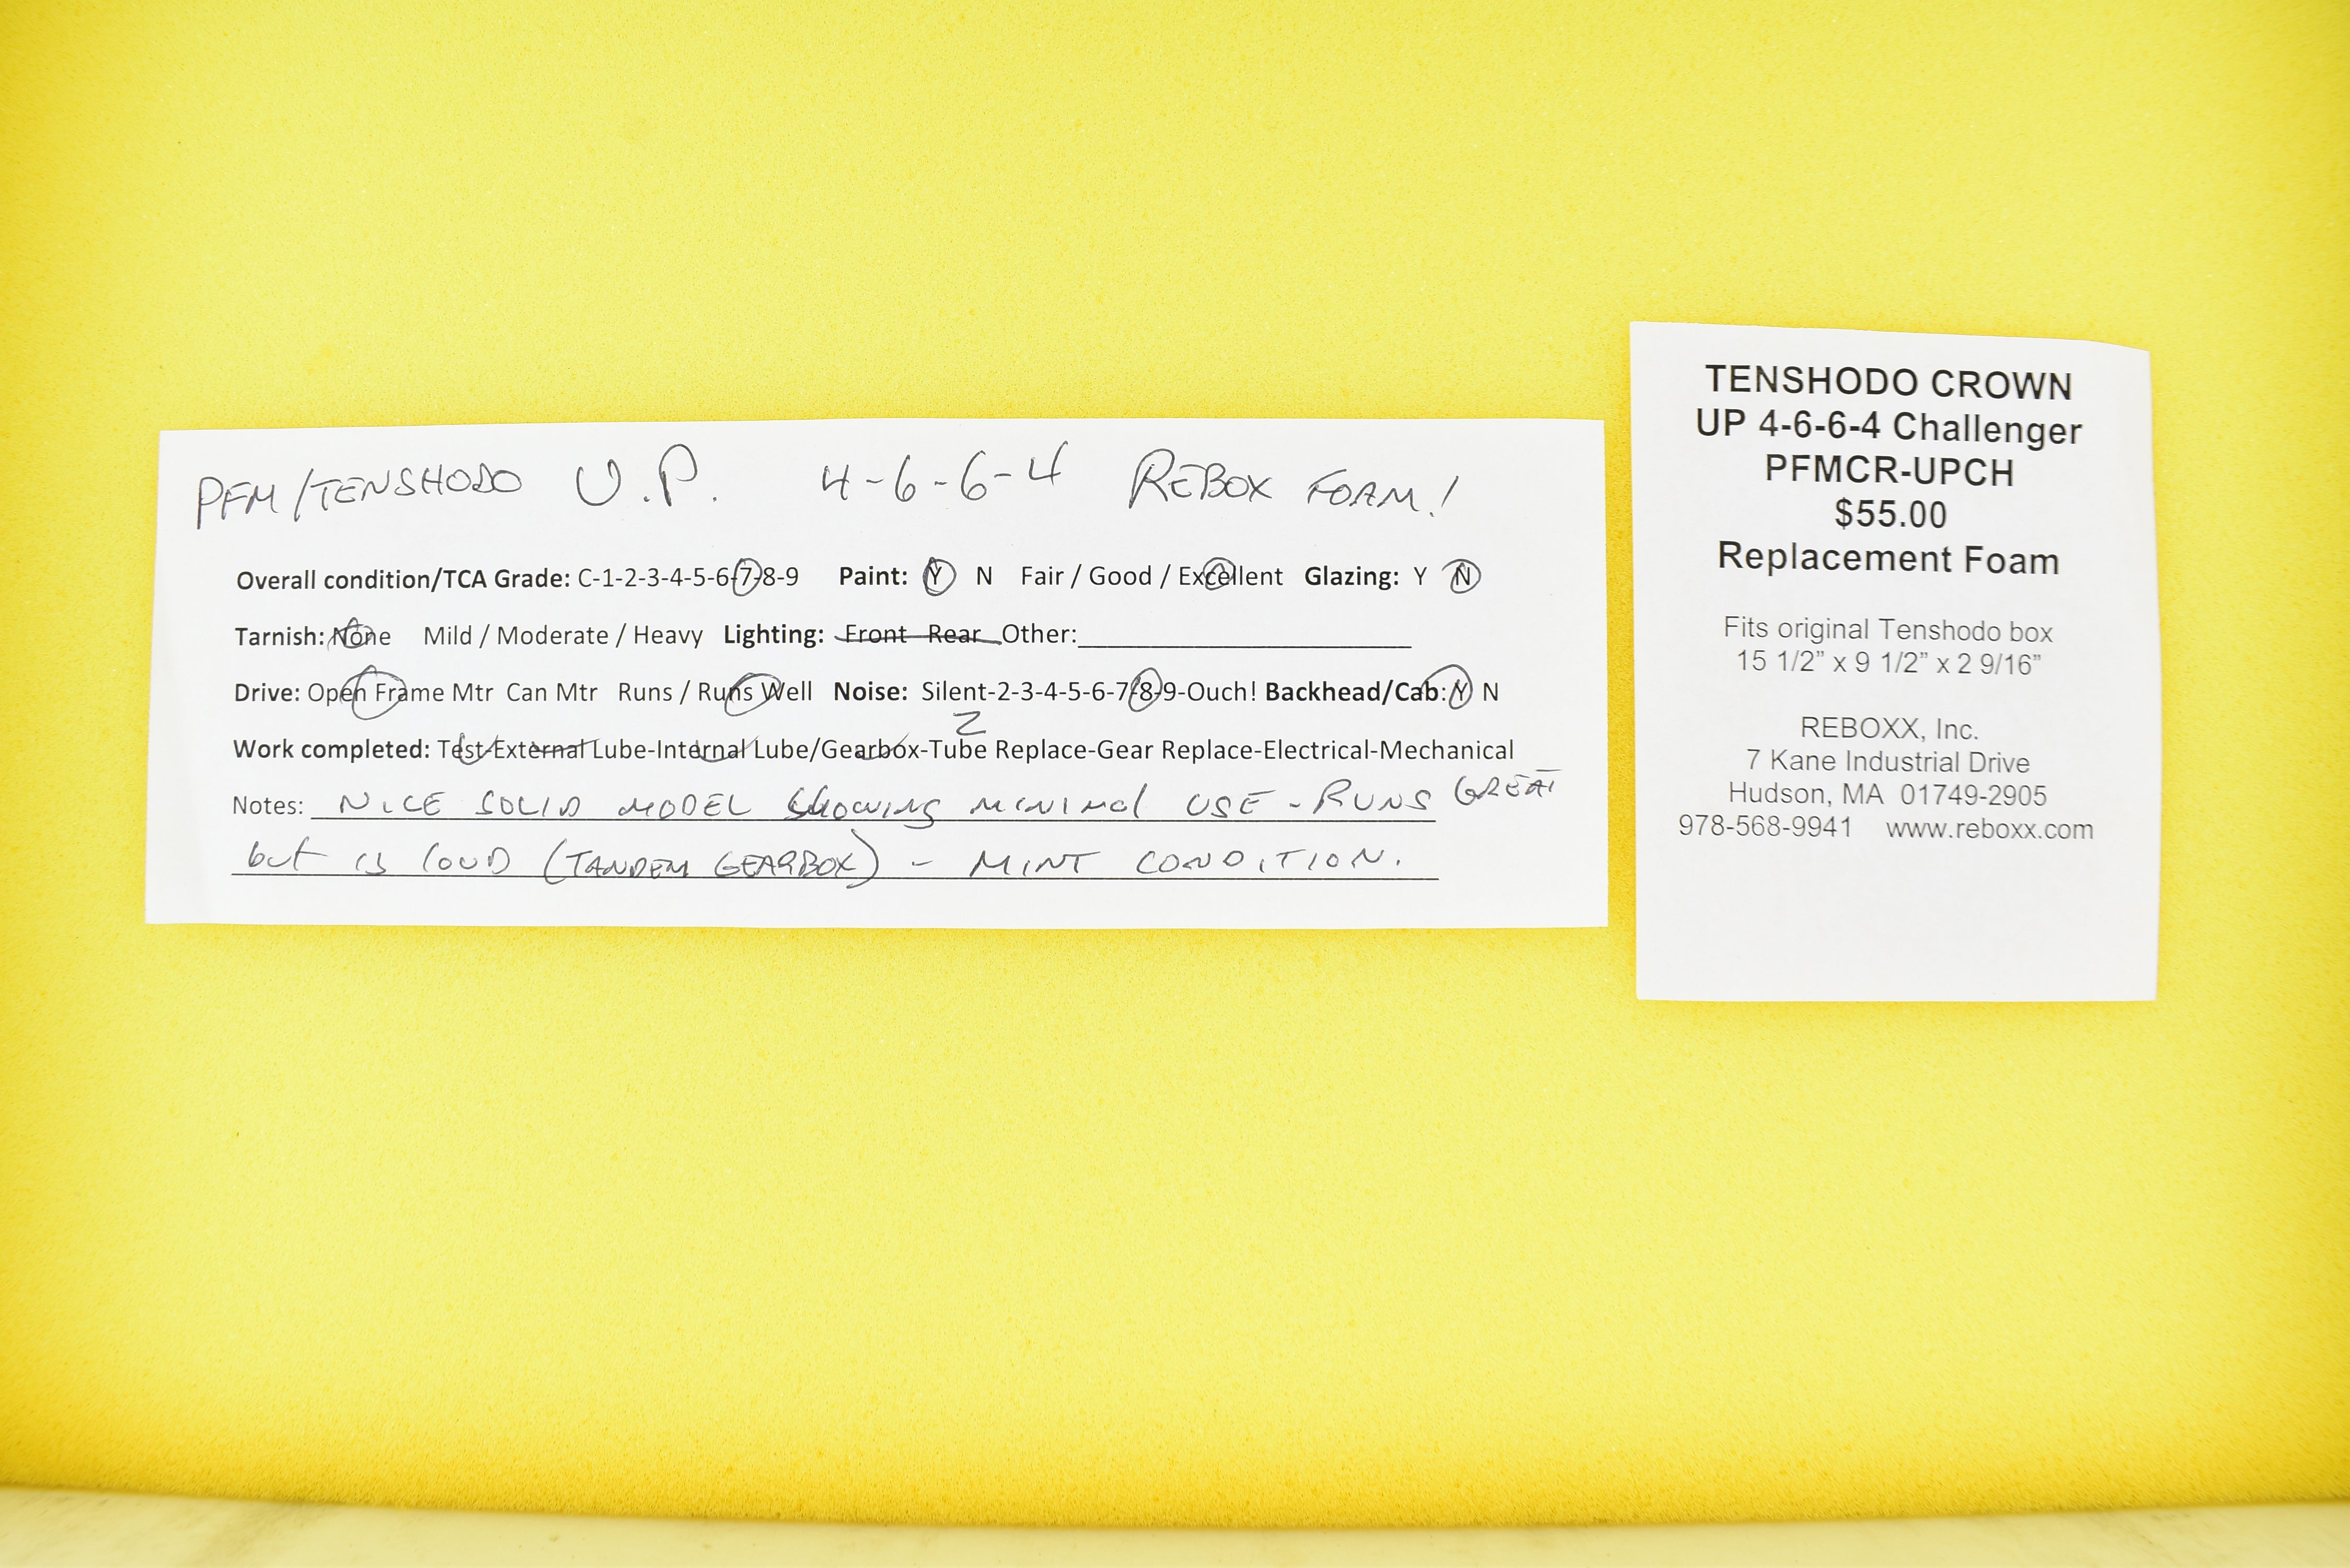 PFM/TENSHODO U.P. 4-6-6-4 REBOX FOAM!
Overall condition/TCA Grade: C-1-2-3-4-5-6-7-8-9 Paint: Y N Fair / Good / Excellent Glazing: Y N
Tarnish: None Mild / Moderate / Heavy Lighting: Front Rear Other:
Drive: Open Frame Mtr Can Mtr Runs / Runs Well Noise: Silent-2-3-4-5-6-7-8-9-Ouch! Backhead/Cab: Y N
2
Work completed: Test-External Lube-Internal Lube/Gearbox-Tube Replace-Gear Replace-Electrical-Mechanical
Notes: NICE SOLID MODEL Showing MINIMAL USE - RUNS GREAT
but is LOUD (TANDEM GEARBOX) - MINT CONDITION.
TENSHODO CROWN
UP 4-6-6-4 Challenger
PFMCR-UPCH
$55.00
Replacement Foam
Fits original Tenshodo box
15 1/2” x 9 1/2” x 2 9/16”
REBOXX, Inc.
7 Kane Industrial Drive
Hudson, MA 01749-2905
978-568-9941 www.reboxx.com